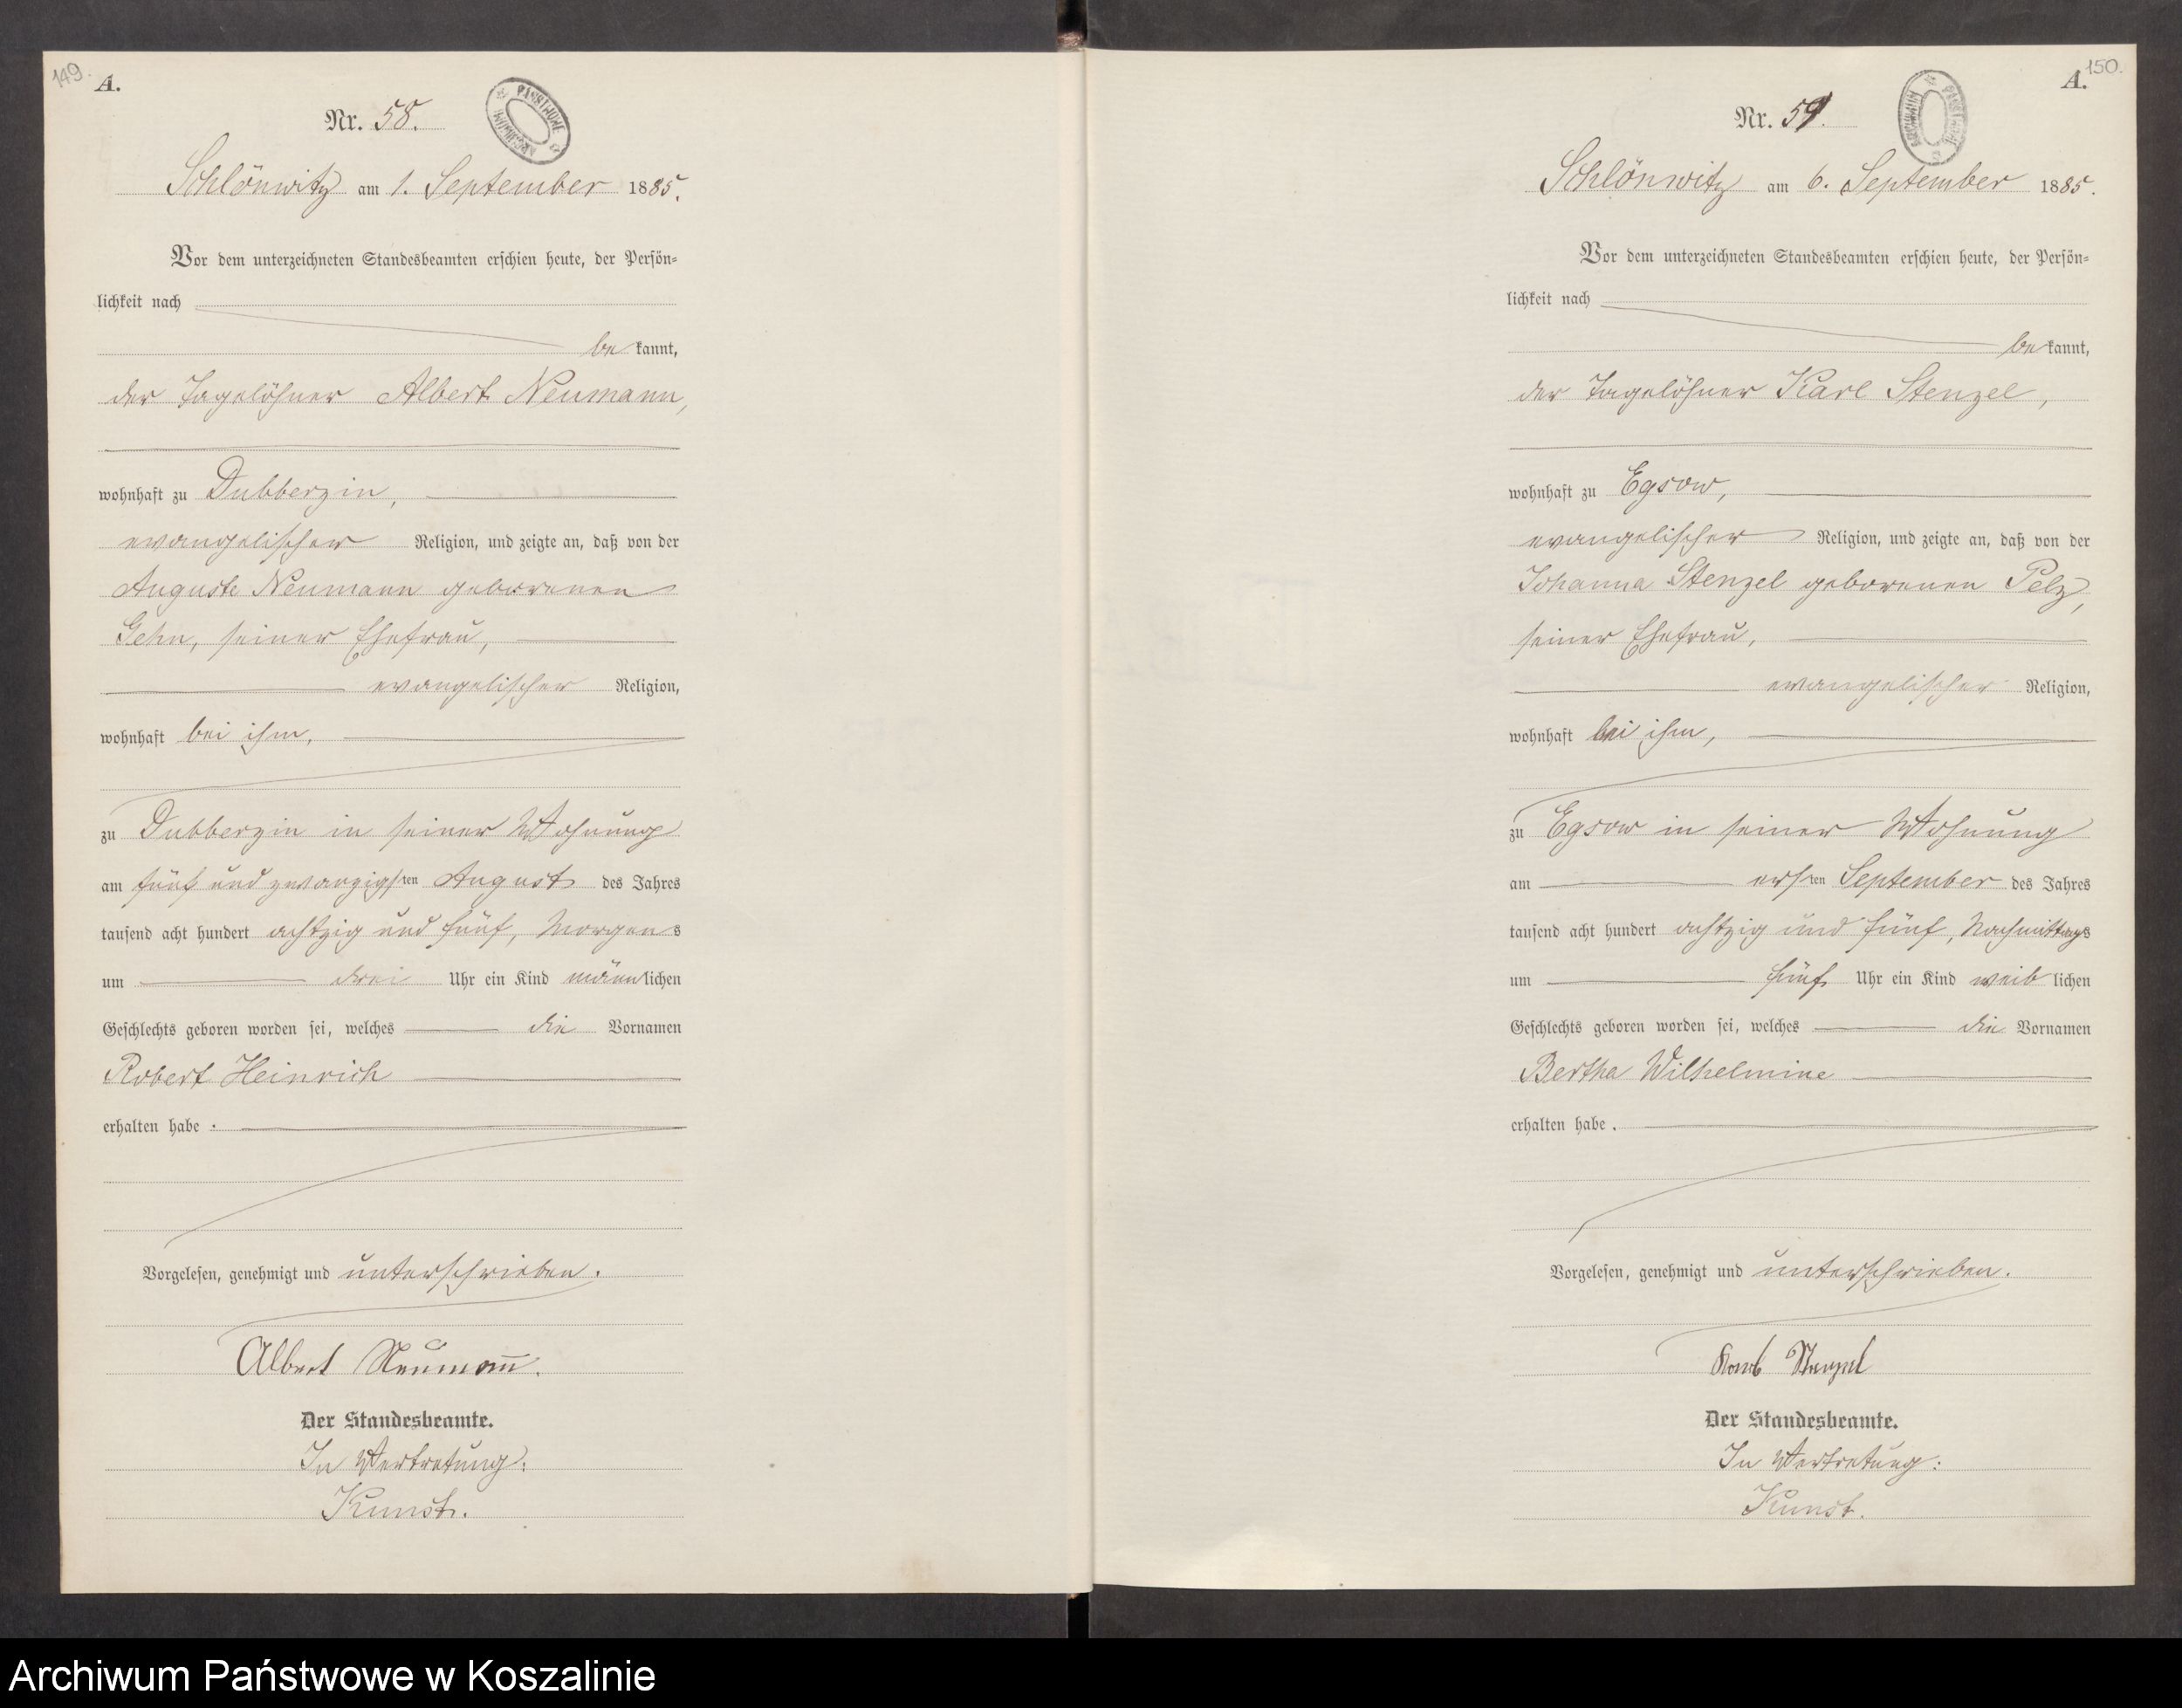 149.
A.
Nr. 58.
ARCHIWUM PAŃSTWOWE
Schlönwitz am 1. September 1885.
Vor dem unterzeichneten Standesbeamten erschien heute, der Persön-
lichkeit nach
be kannt,
der Tagelöhner Albert Neumann,
wohnhaft zu Dubberzin,
evangelischer Religion, und zeigte an, daß von der
Auguste Neumann geborenen
Gehn, seiner Ehefrau,
evangelischer Religion,
wohnhaft bei ihm,
zu Dubberzin in seiner Wohnung
am fünf und zwanzigsten August des Jahres
tausend acht hundert achtzig und fünf, Morgens
um drei Uhr ein Kind männlichen
Geschlechts geboren worden sei, welches die Vornamen
Robert Heinrich
erhalten habe.
Vorgelesen, genehmigt und unterschrieben.
Albert Neumann.
Der Standesbeamte.
In Vertretung:
Kunst.
150.
A.
Nr. 59.
ARCHIWUM PAŃSTWOWE
Schlönwitz am 6. September 1885.
Vor dem unterzeichneten Standesbeamten erschien heute, der Persön-
lichkeit nach
be kannt,
der Tagelöhner Karl Stenzel,
wohnhaft zu Egsow,
evangelischer Religion, und zeigte an, daß von der
Johanna Stenzel geborenen Pelz,
seiner Ehefrau,
evangelischer Religion,
wohnhaft bei ihm,
zu Egsow in seiner Wohnung
am ersten September des Jahres
tausend acht hundert achtzig und fünf, Nachmittags
um fünf Uhr ein Kind weiblichen
Geschlechts geboren worden sei, welches die Vornamen
Bertha Wilhelmine
erhalten habe.
Vorgelesen, genehmigt und unterschrieben.
Karl Stenzel
Der Standesbeamte.
In Vertretung:
Kunst.
Archiwum Państwowe w Koszalinie